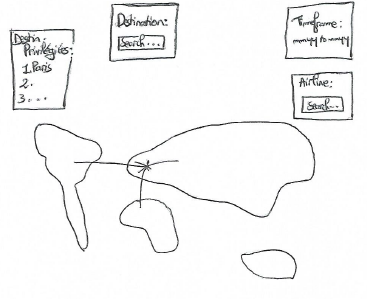 Destin.
Privilégiées:
1. Paris
2.
3. . . .
Destination:
Search . . .
Timeframe:
mmyy to mmyy
Airline:
Search...